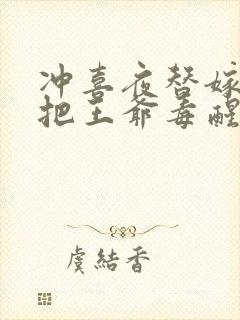 冲喜夜替嫁
把王爷毒醒
虞結香